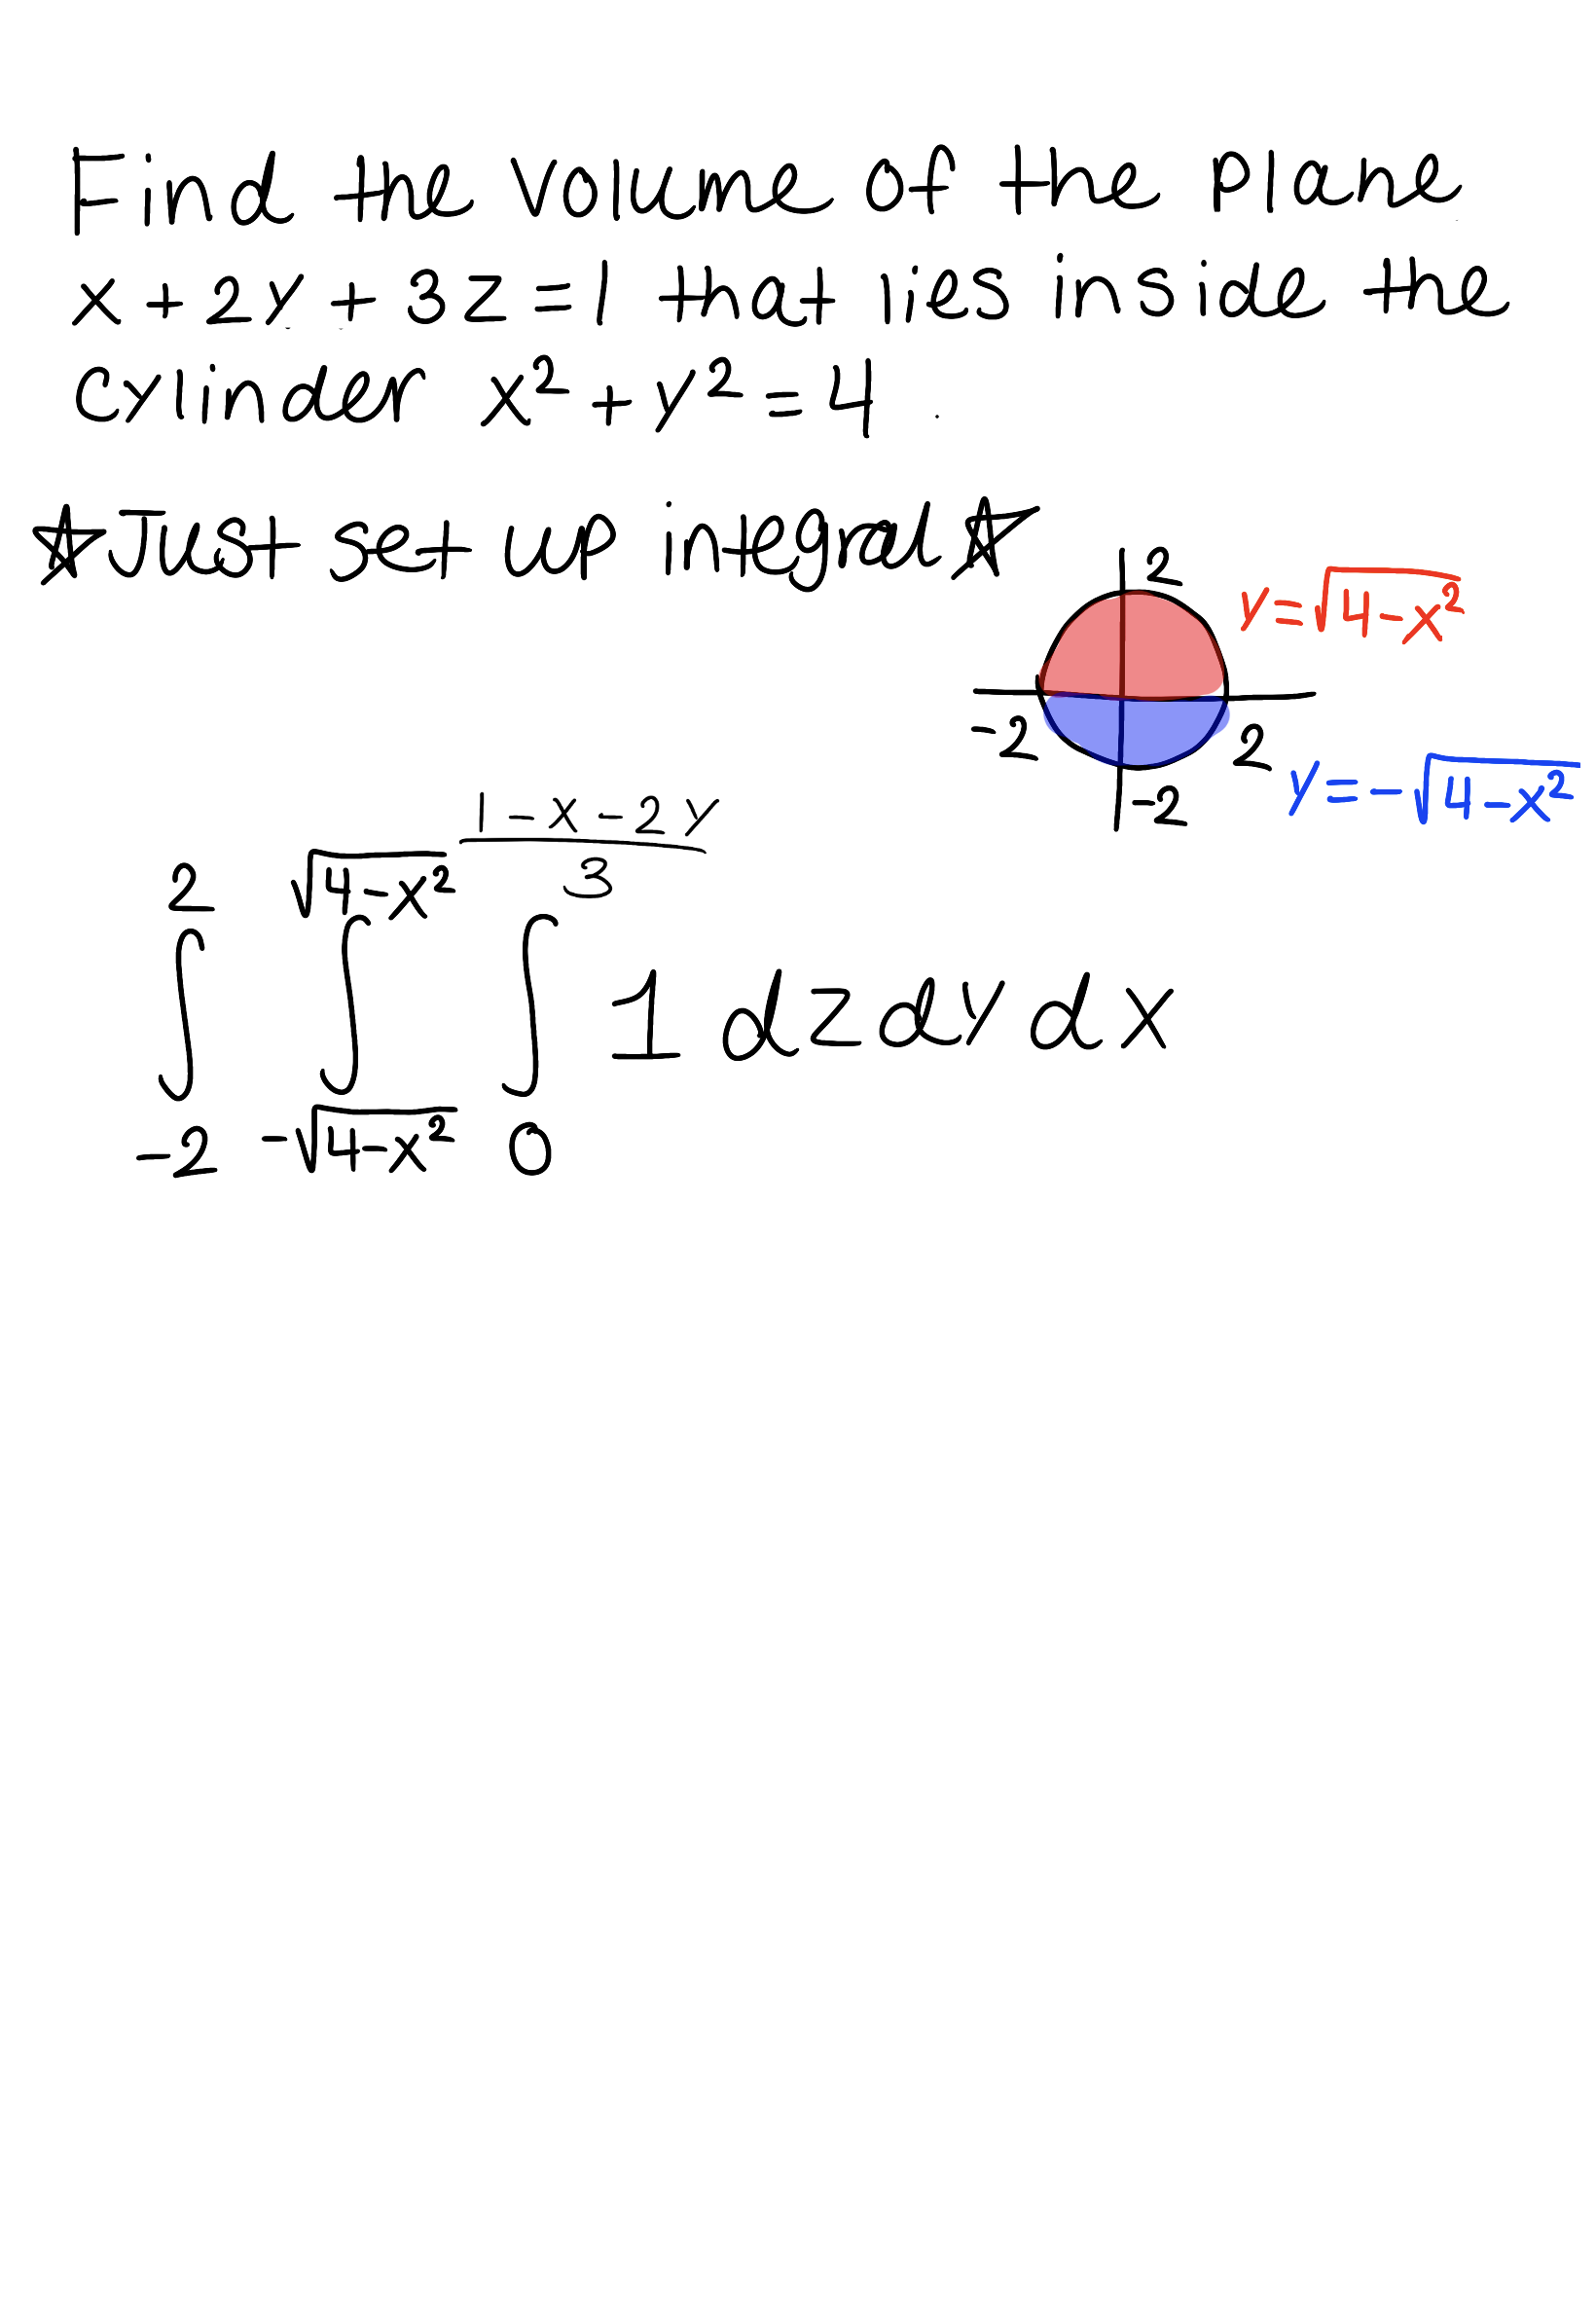 Find the volume of the plane
x + 2y + 3z = 1 that lies inside the
cylinder x² + y² = 4 .
☆ Just set up integral ☆
2
y = √4-x²
-2
2
-2
y = -√4-x²
2 √4-x² (1-x-2y)/3
∫ ∫ ∫ 1 dz dy dx
-2 -√4-x² 0